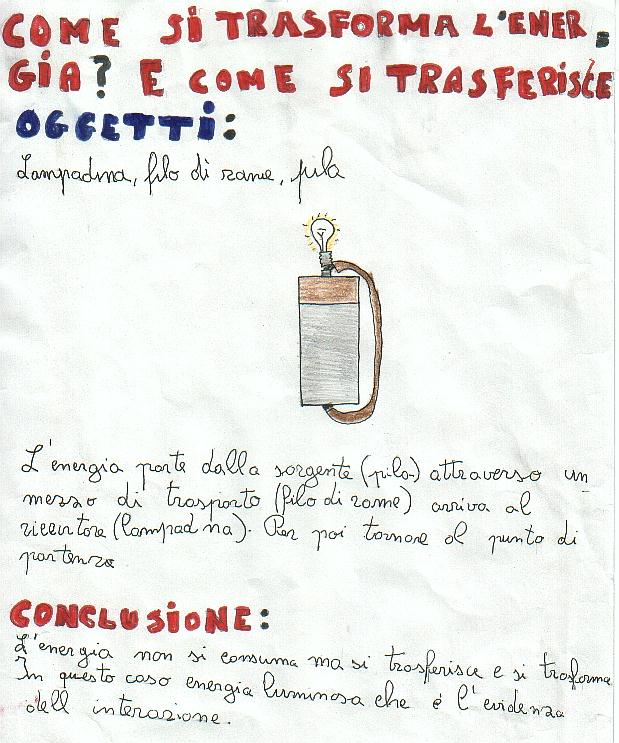 COME SI TRASFORMA L'ENER,
GIA? E COME SI TRASFERISCE
OGGETTI:
Lampadina, filo di rame, pila
L'energia parte dalla sorgente (pila) attraverso un
mezzo di trasporto (filo di rame) arriva al
ricevitore (lampadina). Per poi tornare al punto di
partenza
CONCLUSIONE:
L'energia non si consuma ma si trasferisce e si trasforma
In questo caso energia luminosa che é l'evidenza
dell interazione.